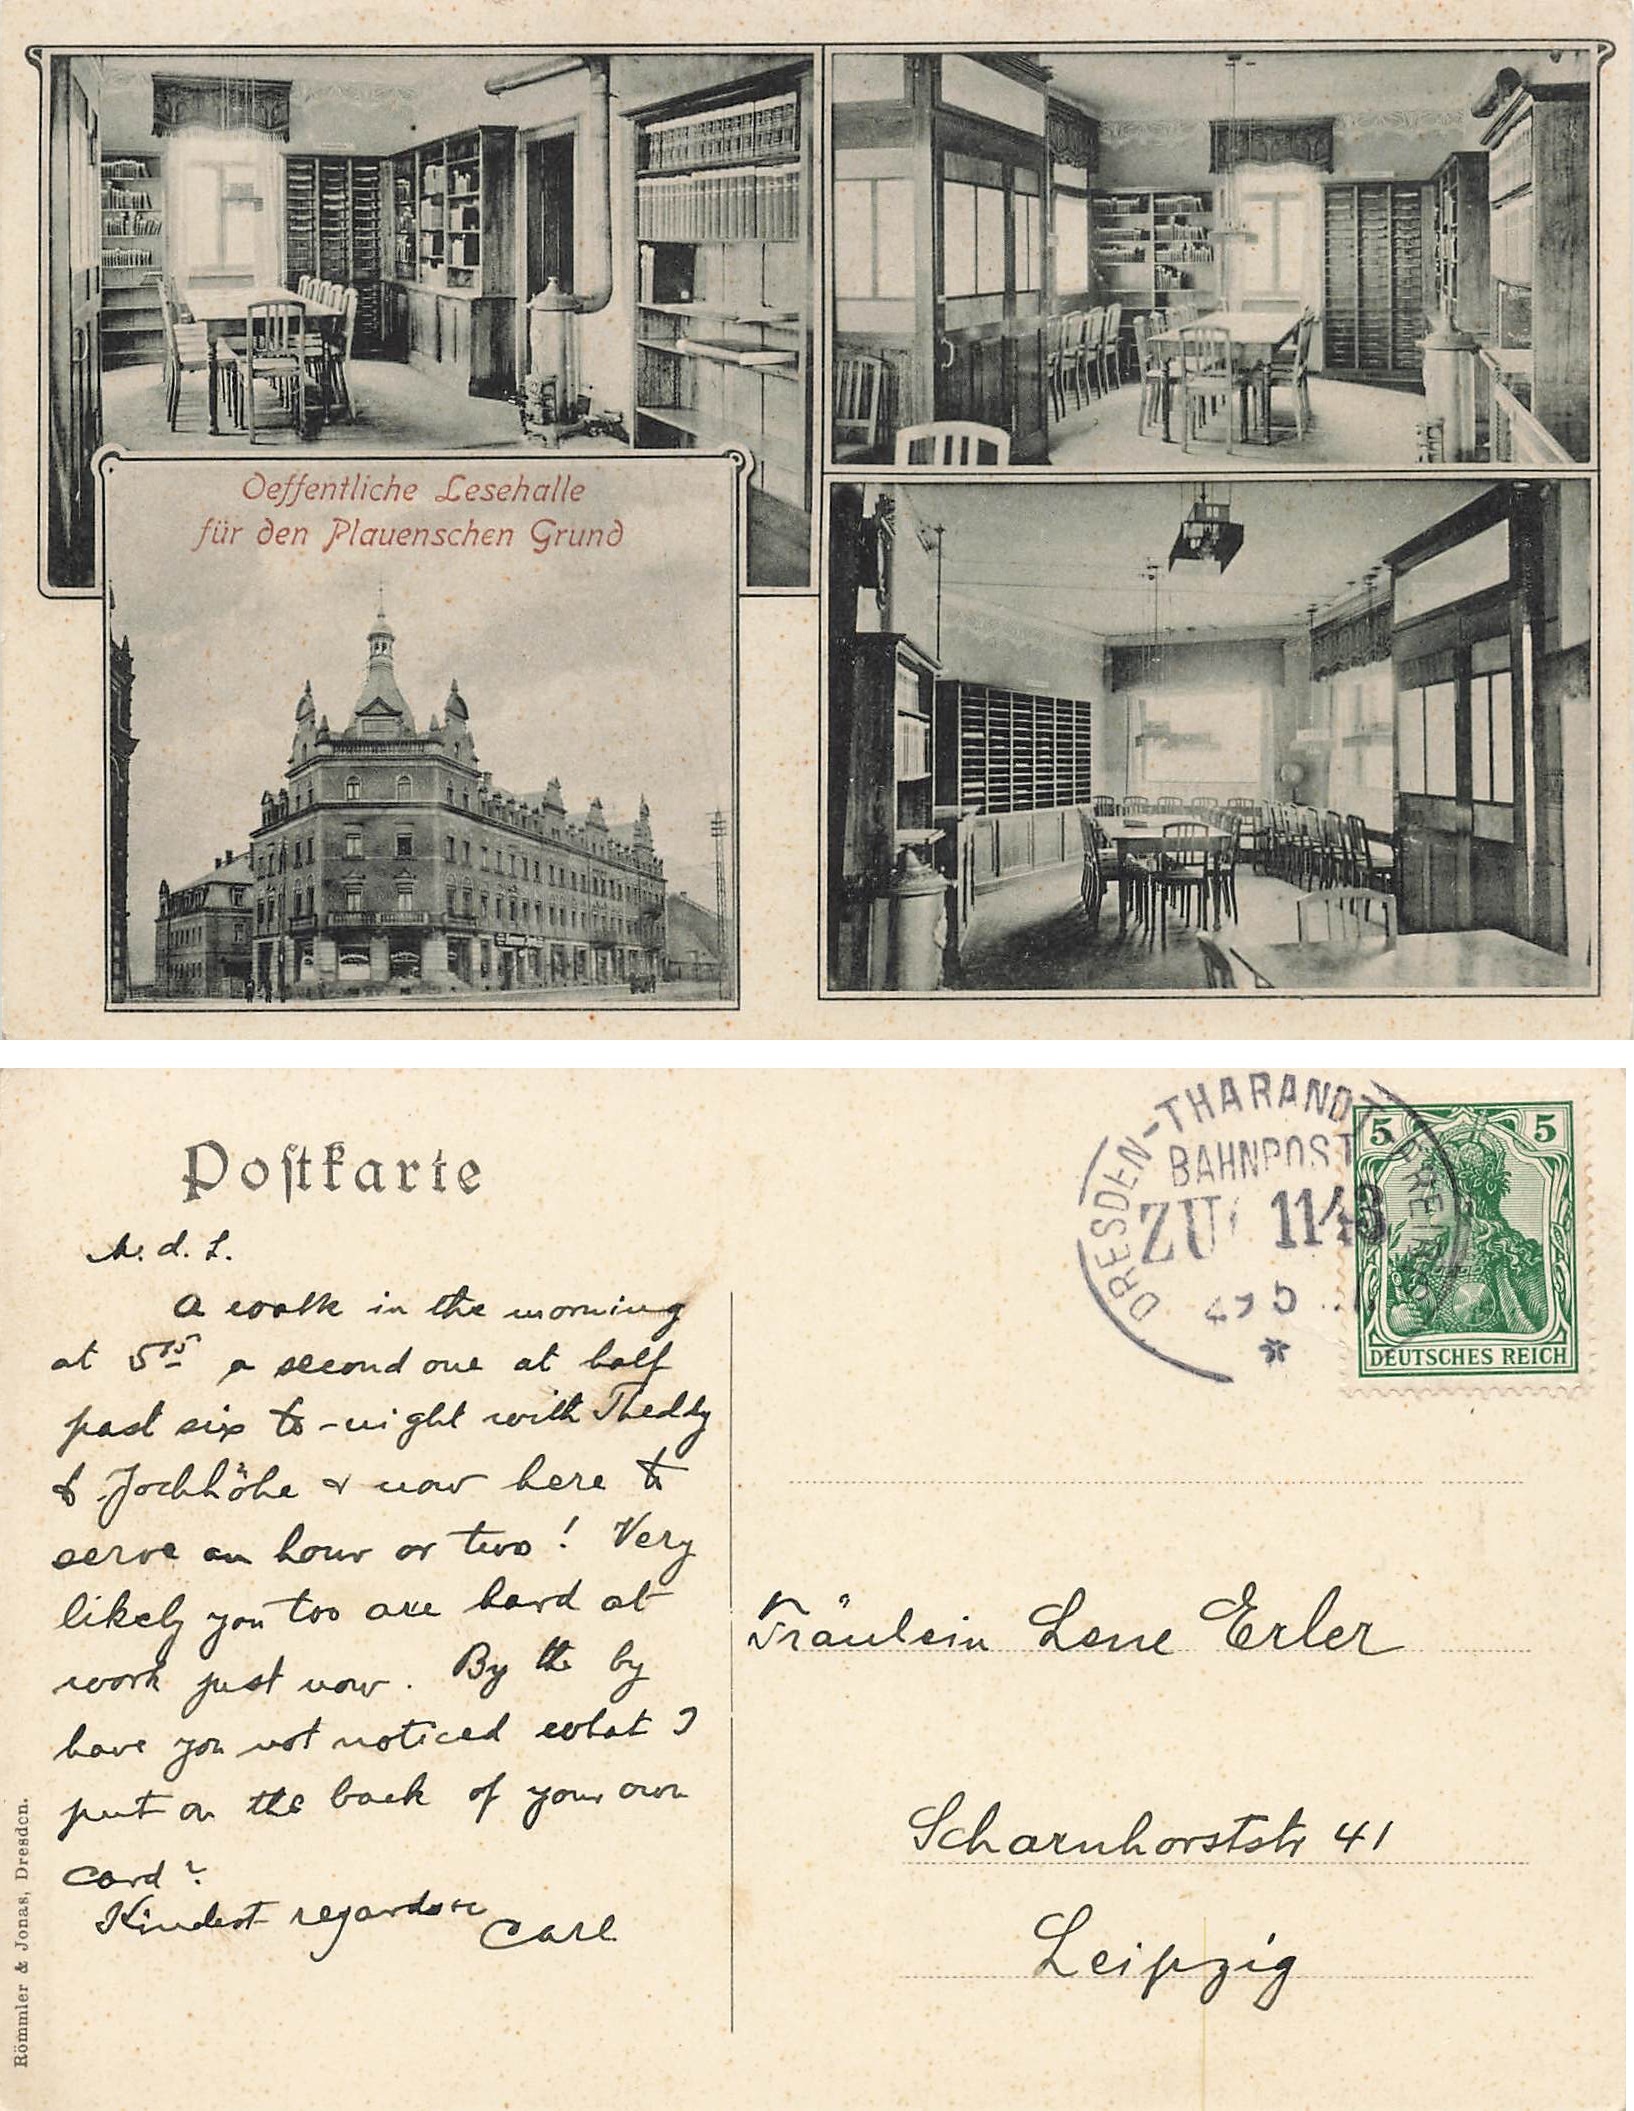 Oeffentliche Lesehalle
für den Plauenschen Grund
Postkarte
M. d. L.
A walk in the morning
at 5 15 a second one at half
past six to-night with Theddy
& Jochhöhe & now here to
serve an hour or two! Very
likely you too are hard at
work just now. By the by
have you not noticed what I
put on the back of your own
card?
Kindest regards
Carl
Römmler & Jonas, Dresden.
DRESDEN-THARANDT
BAHNPOST
ZUG 1143
5 5
DEUTSCHES REICH
Fräulein Lene Erler
Scharnhorststr 41
Leipzig